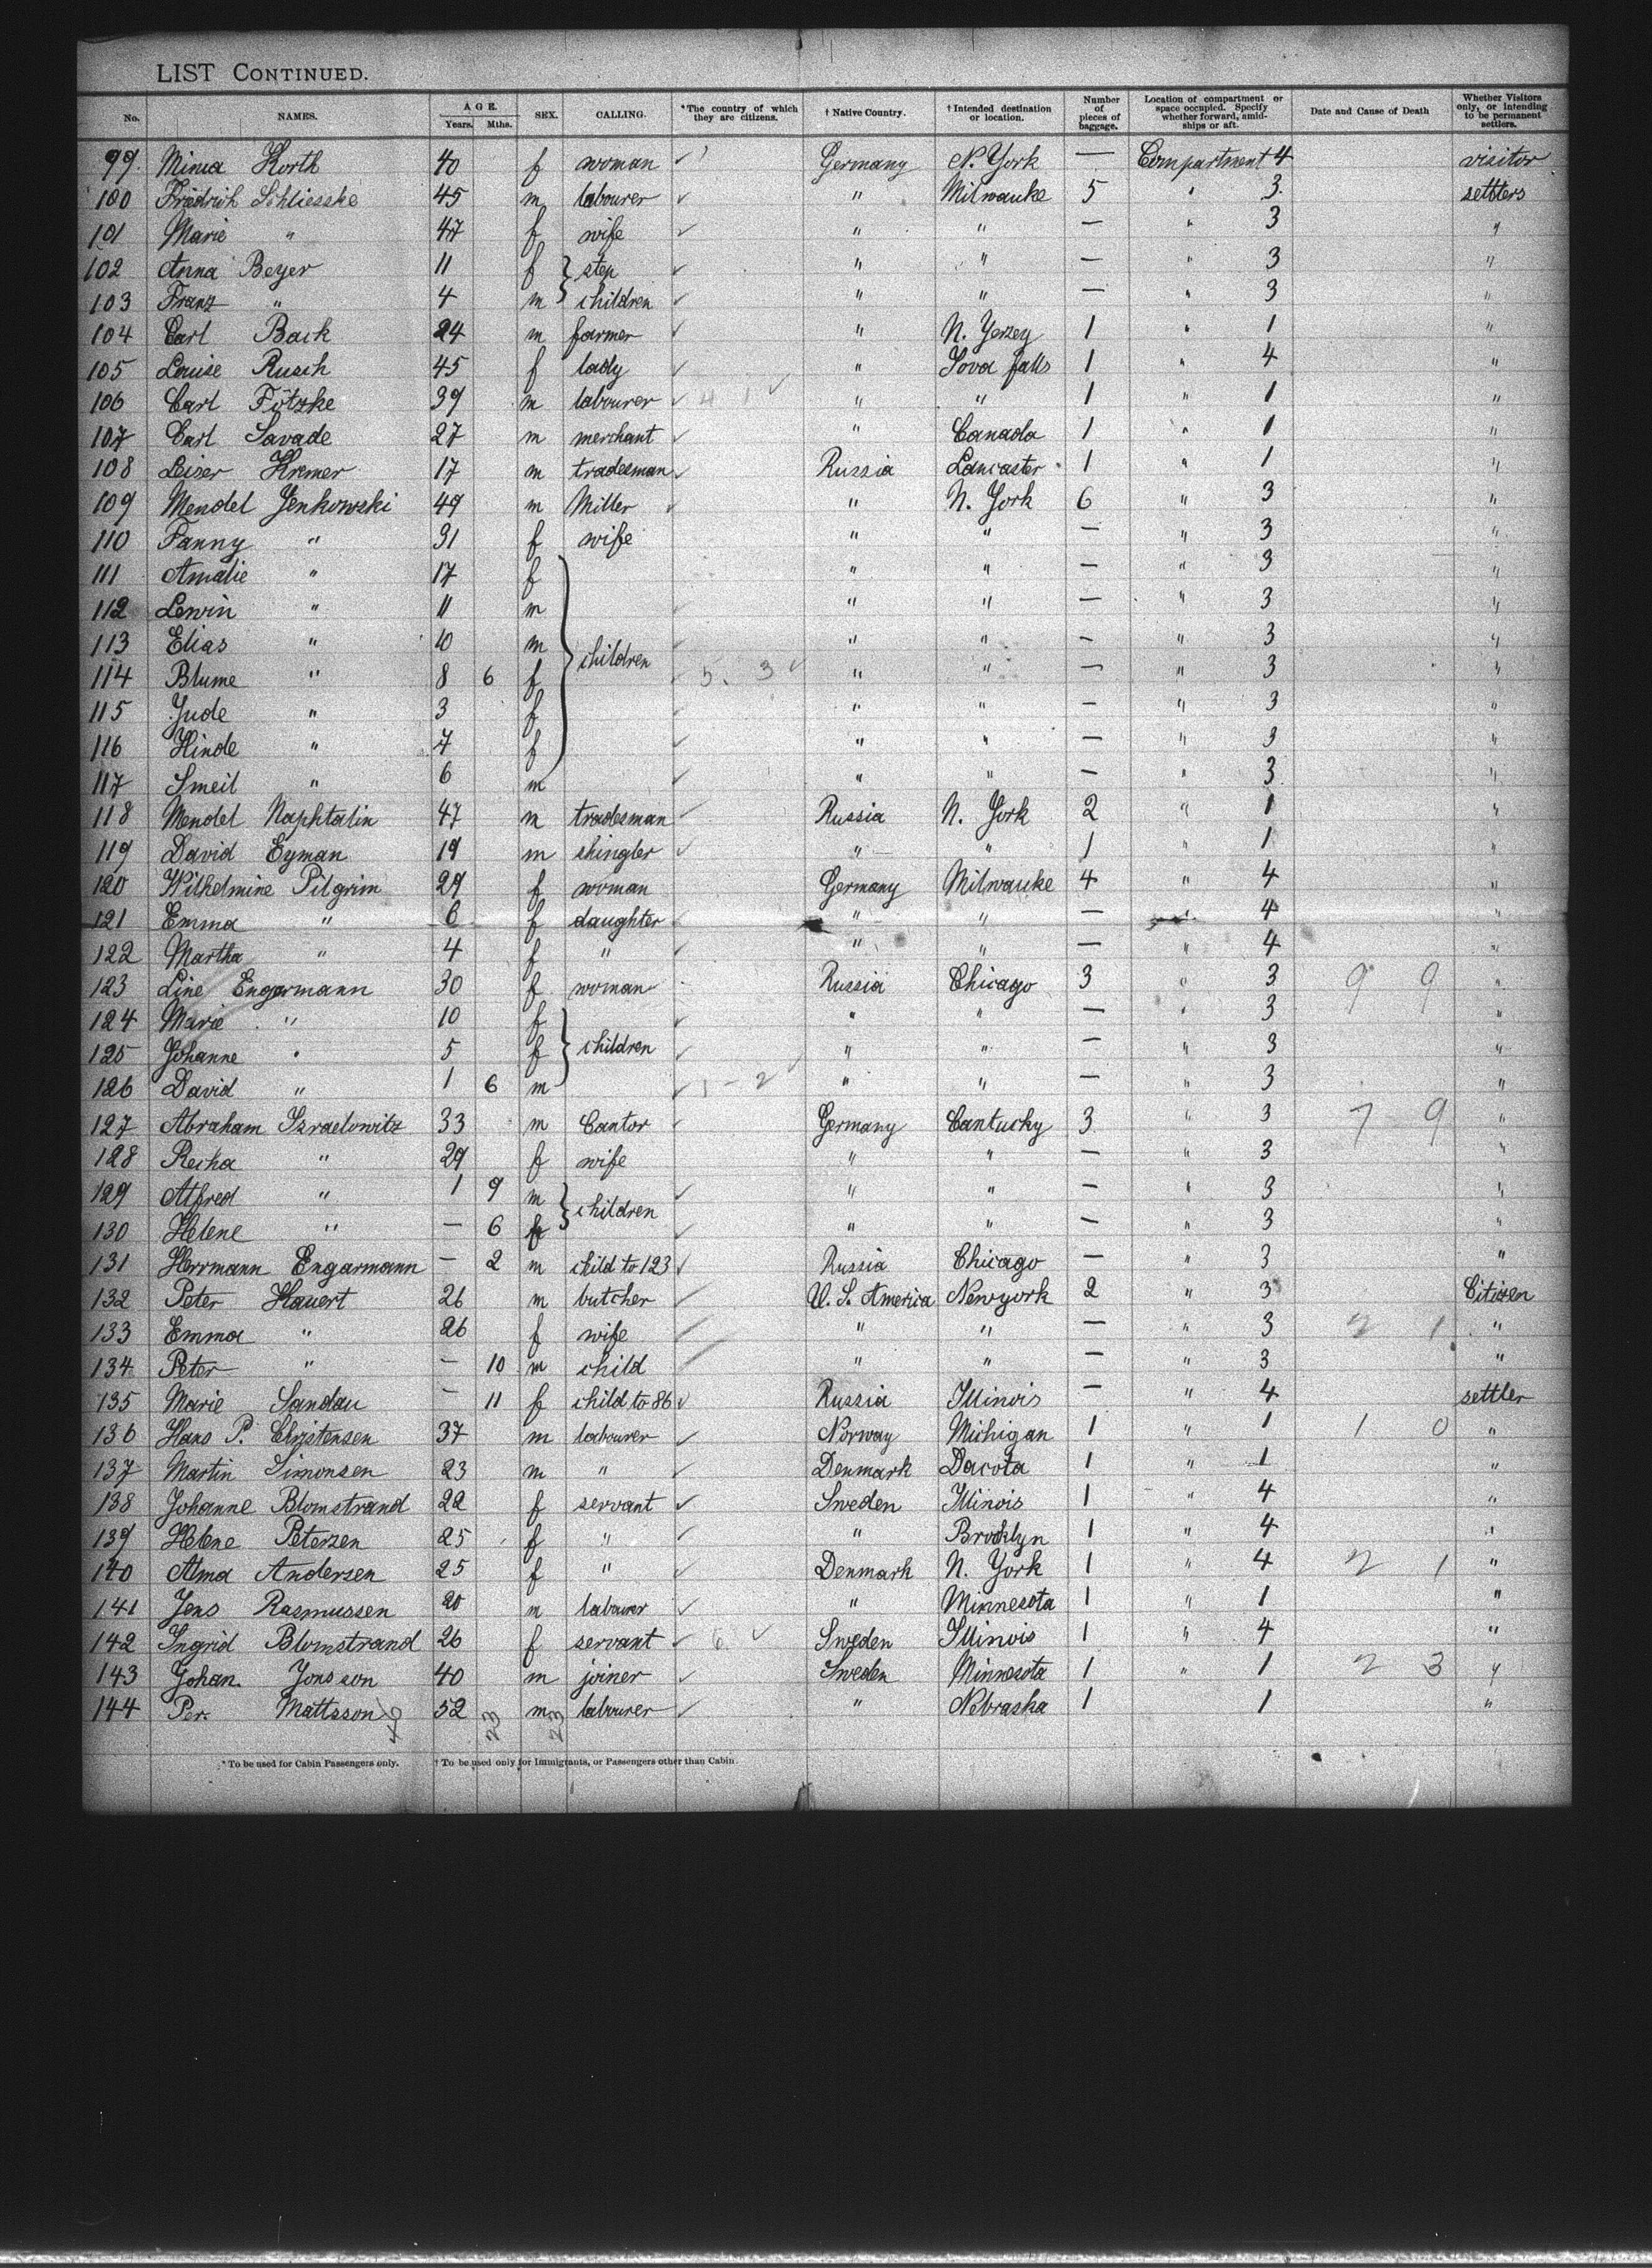 LIST CONTINUED.
No. NAMES. AGE. Years. Mths. SEX. CALLING. *The country of which they are citizens. †Native Country. †Intended destination or location. Number of pieces of baggage. Location of compartment or space occupied. Specify whether forward, amidships or aft. Date and Cause of Death Whether Visitors only, or intending to be permanent settlers.
99 Minna Korth 40 f woman Germany N. York — Compartment 4 visitor
100 Friedrich Schliesske 45 m labourer " Milwauke 5 " 3 settlers
101 Marie " 47 f wife " " — " 3 "
102 Anna Beyer 11 f step " " — " 3 "
103 Franz " 4 m children " " — " 3 "
104 Carl Back 24 m farmer " N. Yerzey 1 " 1 "
105 Louise Rusch 45 f lady " Iova falls 1 " 4 "
106 Carl Fötzke 39 m labourer 4 1 " " 1 " 1 "
107 Carl Savade 27 m merchant " Canada 1 " 1 "
108 Leiser Kremer 17 m tradesman Russia Lancaster 1 " 1 "
109 Mendel Jenkowski 49 m Miller " N. York 6 " 3 "
110 Fanny " 31 f wife " " — " 3 "
111 Amalie " 17 f " " — " 3 "
112 Lewin " 11 m " " — " 3 "
113 Elias " 10 m children " " — " 3 "
114 Blume " 8 6 f 5. 3 " " — " 3 "
115 Jude " 3 f " " — " 3 "
116 Hinde " 7 f " " — " 3 "
117 Smeil " 6 m " " — " 3 "
118 Mendel Naphtalin 47 m tradesman Russia N. York 2 " 1 "
119 David Eyman 19 m shingler " " 1 " 1 "
120 Wilhelmine Pilgrim 29 f woman Germany Milwauke 4 " 4 "
121 Emma " 6 f daughter " " — " 4 "
122 Martha " 4 f " " " — " 4 "
123 Line Engarmann 30 f woman Russia Chicago 3 " 3 9 9 "
124 Marie " 10 f " " — " 3 "
125 Johanne " 5 f children " " — " 3 "
126 David " 1 6 m 1 - 2 " " — " 3 "
127 Abraham Israelowitz 33 m Cantor Germany Cantucky 3 " 3 7 9 "
128 Recha " 29 f wife " " — " 3 "
129 Alfred " 1 9 m children " " — " 3 "
130 Helene " — 6 f " " — " 3 "
131 Herrmann Engarmann — 2 m child to 123 Russia Chicago — " 3 "
132 Peter Hauert 26 m butcher U. S. America Newyork 2 " 3 Citizen
133 Emma " 26 f wife " " — " 3 2 1 "
134 Peter " — 10 m child " " — " 3 "
135 Marie Sandau — 11 f child to 86 Russia Illinois — " 4 settler
136 Hans P. Christensen 37 m labourer Norway Michigan 1 " 1 1 0 "
137 Martin Simonsen 23 m " Denmark Dacota 1 " 1 "
138 Johanne Blomstrand 22 f servant Sweden Illinois 1 " 4 "
139 Helene Peterzen 25 f " " Brooklyn 1 " 4 "
140 Alma Andersen 25 f " Denmark N. York 1 " 4 2 1 "
141 Jens Rasmussen 20 m labourer " Minnesota 1 " 1 "
142 Ingrid Blomstrand 26 f servant 6 Sweden Illinois 1 " 4 "
143 Johan Jonsson 40 m joiner Sweden Minnesota 1 " 1 2 3 "
144 Per. Mattsson 52 m labourer " Nebraska 1 1 "
23 23
*To be used for Cabin Passengers only. †To be used only for Immigrants, or Passengers other than Cabin.